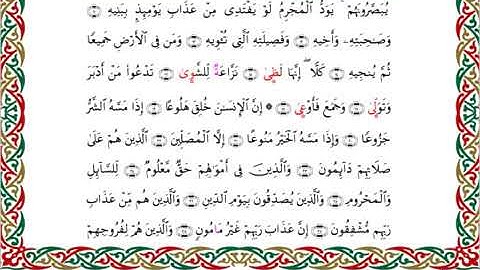 يُبَصَّرُونَهُمْ ۚ يَوَدُّ ٱلْمُجْرِمُ لَوْ يَفْتَدِى مِنْ عَذَابِ يَوْمِئِذٍۭ بِبَنِيهِ ۝
وَصَـٰحِبَتِهِۦ وَأَخِيهِ ۝ وَفَصِيلَتِهِ ٱلَّتِى تُـْٔوِيهِ ۝ وَمَن فِى ٱلْأَرْضِ جَمِيعًا
ثُمَّ يُنجِيهِ ۝ كَلَّآ ۖ إِنَّهَا لَظَىٰ ۝ نَزَّاعَةً لِّلشَّوَىٰ ۝ تَدْعُوا۟ مَنْ أَدْبَرَ
وَتَوَلَّىٰ ۝ وَجَمَعَ فَأَوْعَىٰٓ ۝ ۞ إِنَّ ٱلْإِنسَـٰنَ خُلِقَ هَلُوعًا ۝ إِذَا مَسَّهُ ٱلشَّرُّ
جَزُوعًا ۝ وَإِذَا مَسَّهُ ٱلْخَيْرُ مَنُوعًا ۝ إِلَّا ٱلْمُصَلِّينَ ۝ ٱلَّذِينَ هُمْ عَلَىٰ
صَلَاتِهِمْ دَآئِمُونَ ۝ وَٱلَّذِينَ فِىٓ أَمْوَٰلِهِمْ حَقٌّ مَّعْلُومٌ ۝ لِّلسَّآئِلِ
وَٱلْمَحْرُومِ ۝ وَٱلَّذِينَ يُصَدِّقُونَ بِيَوْمِ ٱلدِّينِ ۝ وَٱلَّذِينَ هُم مِّنْ عَذَابِ
رَبِّهِم مُّشْفِقُونَ ۝ إِنَّ عَذَابَ رَبِّهِمْ غَيْرُ مَأْمُونٍ ۝ وَٱلَّذِينَ هُمْ لِفُرُوجِهِمْ